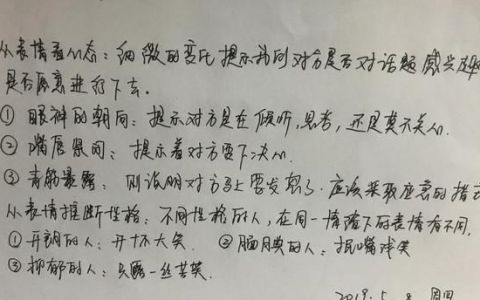 从表情看心态：细微的变化提示我们对方是否对话题感兴趣
是否愿意进行下去。
① 眼神的朝向：提示对方是在倾听，思考，还是莫不关心.
② 嘴唇紧闭：提示着对方要下决心.
③ 青筋暴露：则说明对方马上要发怒了.应该采取应急的措
从表情推断性格：不同性格的人，在同一情绪下的表情有不同.
①开朗的人：开怀大笑. ②腼腆的人：抿嘴
③抑郁的人：只露一丝苦笑.
2019.5.8 周四